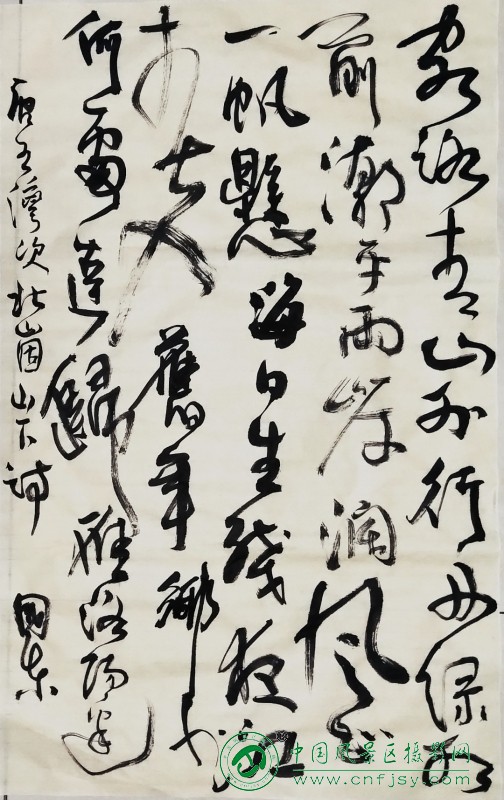 客路青山外行舟绿水
前潮平兩岸濶风正
一帆懸海日生残夜江
春入舊年鄉书
何處達歸雁洛陽邊
唐王灣次北固山下诗
國东
中国风景区摄影网
www.cnfjsy.com